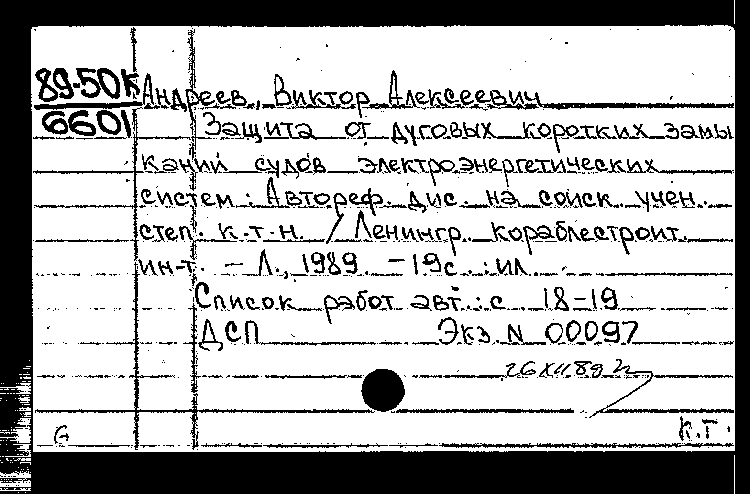 89-50К Андреев, Виктор Алексеевич
6601 Защита от дуговых коротких замы
каний судов электроэнергетических
систем : Автореф. дис. на соиск. учен.
степ. к.т.н. / Ленингр. кораблестроит.
ин-т. – Л., 1989. – 19с. : ил.
Список работ авт.: с 18-19
ДСП Экз. N 00097
26 XII 89 г
К.Т.